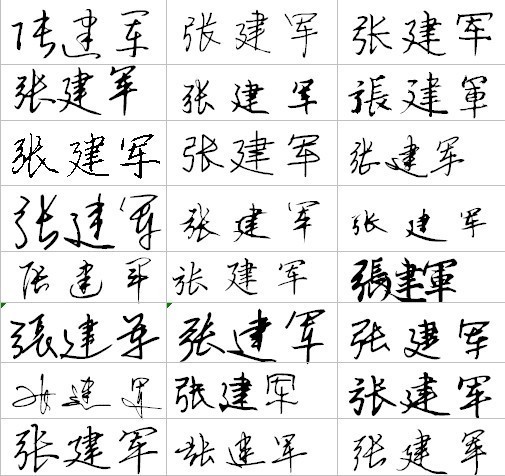 张建军 张建军 张建军
张建军 张建军 張建軍
张建军 张建军 张建军
张建军 张建军 张建军
张建军 张建军 張建軍
張建军 张建军 张建军
张建军 张建军 张建军
张建军 张建军 张建军